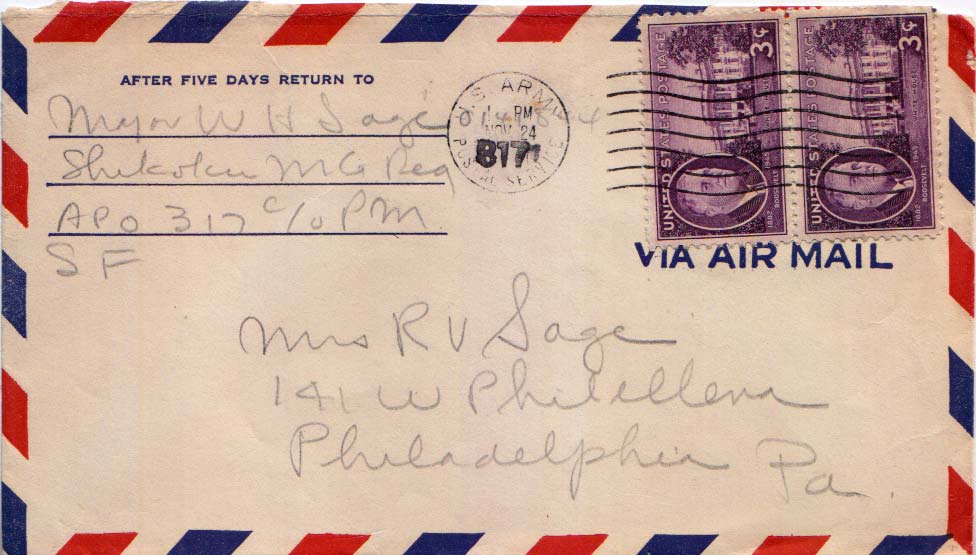 AFTER FIVE DAYS RETURN TO
Major W H Sage
Shikoku MG Reg
APO 317 c/o PM
S F
U.S. ARMY
PM
NOV 24
POSTAL SERVICE
UNITED STATES POSTAGE
3¢
WHITE HOUSE
1882 ROOSEVELT 1945
UNITED STATES POSTAGE
3¢
WHITE HOUSE
1882 ROOSEVELT 1945
VIA AIR MAIL
Mrs R V Sage
141 W Phillellena
Philadelphia Pa.